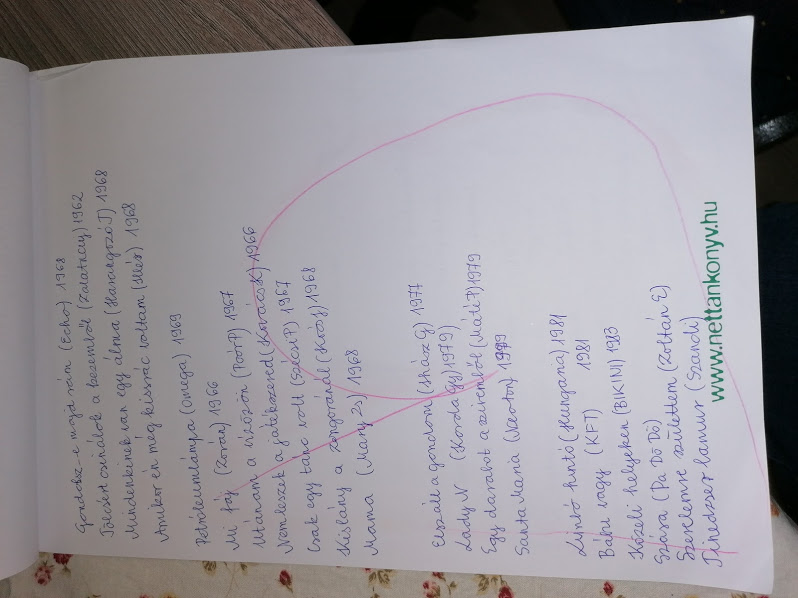 Gondolsz-e majd rám (Echo) 1968
Tölcsért csinálok a kezemből (Zalatnay) 1962
Mindenkinek van egy álma (Harangozó T) 1968
Amikor én még kissrác voltam (Illés) 1968
Petróleumlámpa (Omega) 1969
Mi fáj (Zorán) 1966
Utánam a vízözön (Poór P) 1967
Nem leszek a játékszered (Kovács K) 1966
Csak egy tánc volt (Szécsi P) 1967
Kislány a zongoránál (Koós J) 1968
Mama (Mary Zs) 1968
Elszáll a gondom (Ihász G) 1977
Lady N (Korda Gy) 1979)
Egy darabot a szívemből (Máté P) 1979
Santa Maria (Neoton) 1979
Limbó hintó (Hungária) 1981
Bábu vagy (KFT) 1981
Közeli helyeken (BIKINI) 1983
Szásza (Pa Dö Dö)
Szerelemre születtem (Zoltán E)
Tinédzser l'amur (Szandi)
www.nettankonyv.hu